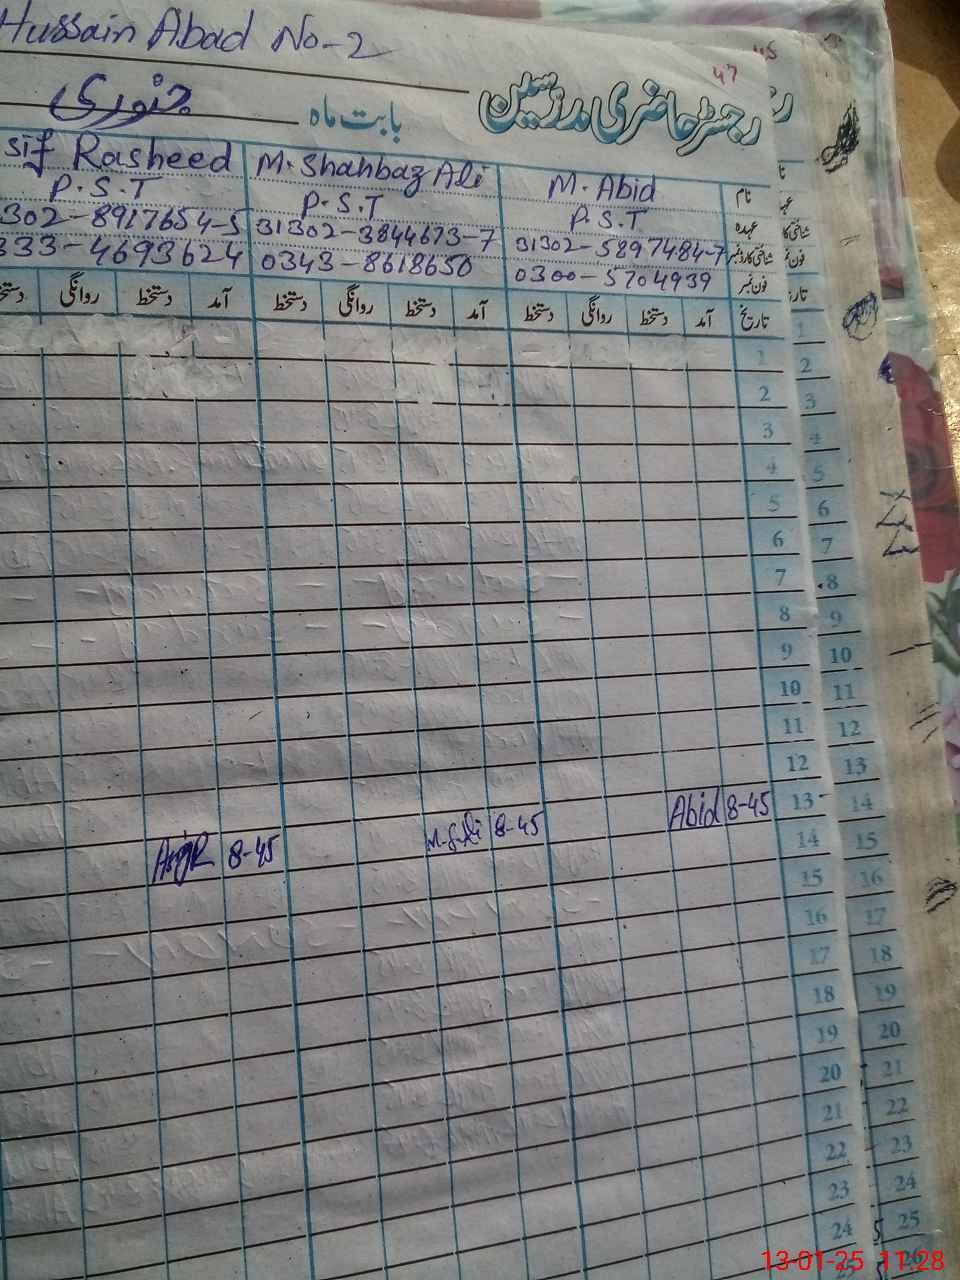 Hussain Abad No-2
47
45
رجسٹر حاضری مدرسین
بابت ماہ جنوری
نام M. Abid M. Shahbaz Ali sif Rasheed
عہدہ P.S.T P.S.T P.S.T
شناختی کارڈ نمبر 31302-5897484-7 31302-3844673-7 302-8917654-5
فون نمبر 0300-5704939 0343-8618650 333-4693624
تاریخ آمد دستخط روانگی دستخط آمد دستخط روانگی دستخط آمد دستخط روانگی
1
2
3
4
5
6
7
8
9
10
11
12
13 8-45 Abid 8-45 M.S.Ali 8-45
14
15
16
17
18
19
20
21
22
23
24
1
2
3
4
5
6
7
8
9
10
11
12
13
14
15
16
17
18
19
20
21
22
23
24
25
26
13-01-25 11:28